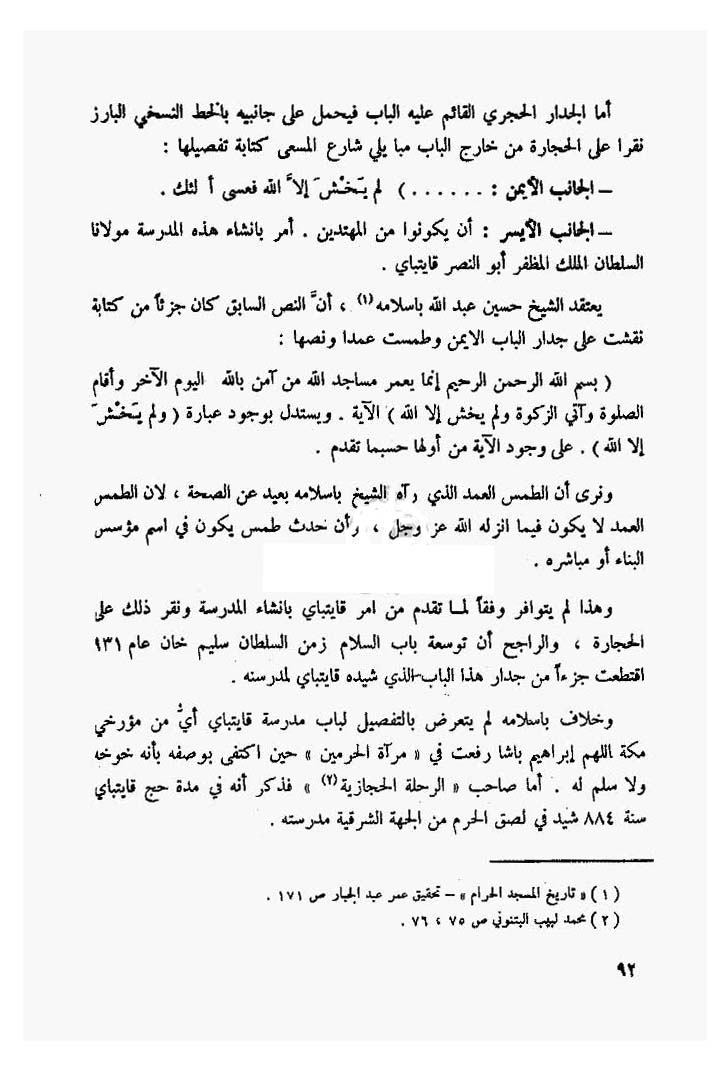 أما الجدار الحجري القائم عليه الباب فيحمل على جانبيه بالخط النسخي البارز
نقرا على الحجارة من خارج الباب مبا يلي شارع المسعى كتابة تفصيلها :
ــ الجانب الأيمن : . . . . . . ) لم يَـخْـشَ إلاَّ الله فعسى أ لئك .
ــ الجانب الأيسر : أن يكونوا من المهتدين . أمر بانشاء هذه المدرسة مولانا
السلطان الملك المظفر أبو النصر قايتباي .
يعتقد الشيخ حسين عبد الله باسلامه (١) ، أنَّ النص السابق كان جزئاً من كتابة
نقشت على جدار الباب الايمن وطمست عمدا ونصها :
( بسم الله الرحمن الرحيم إنما يعمر مساجد الله من آمن بالله اليوم الآخر وأقام
الصلوة وآتي الزكوة ولم يخش إلا الله ) الآية . ويستدل بوجود عبارة ( ولم يَـخْـشَ
إلا الله ) . على وجود الآية من أولها حسبما تقدم .
ونرى أن الطمس العمد الذي رآه الشيخ باسلامه بعيد عن الصحة ، لان الطمس
العمد لا يكون فيما انزله الله عز وجل ، وأن حدث طمس يكون في اسم مؤسس
البناء أو مباشره .
وهذا لم يتوافر وفقاً لما تقدم من امر قايتباي بانشاء المدرسة ونقر ذلك على
الحجارة ، والراجح أن توسعة باب السلام زمن السلطان سليم خان عام ٩٣١
اقتطعت جزءاً من جدار هذا الباب الذي شيده قايتباي لمدرسنه .
وخلاف باسلامه لم يتعرض بالتفصيل لباب مدرسة قايتباي أيُّ من مؤرخي
مكة اللهم إبراهيم باشا رفعت في « مرآة الحرمين » حين اكتفى بوصفه بأنه خوخه
ولا سلم له . أما صاحب « الرحلة الحجازية (٢) » فذكر أنه في مدة حج قايتباي
سنة ٨٨٤ شيد في لصق الحرم من الجهة الشرقية مدرسته .
( ١ ) « تاريخ المسجد الحرام » ــ تحقيق عمر عبد الجبار ص ١٧١ .
( ٢ ) محمد لبيب البتنوني ص ٧٥ ، ٧٦ .
٩٢